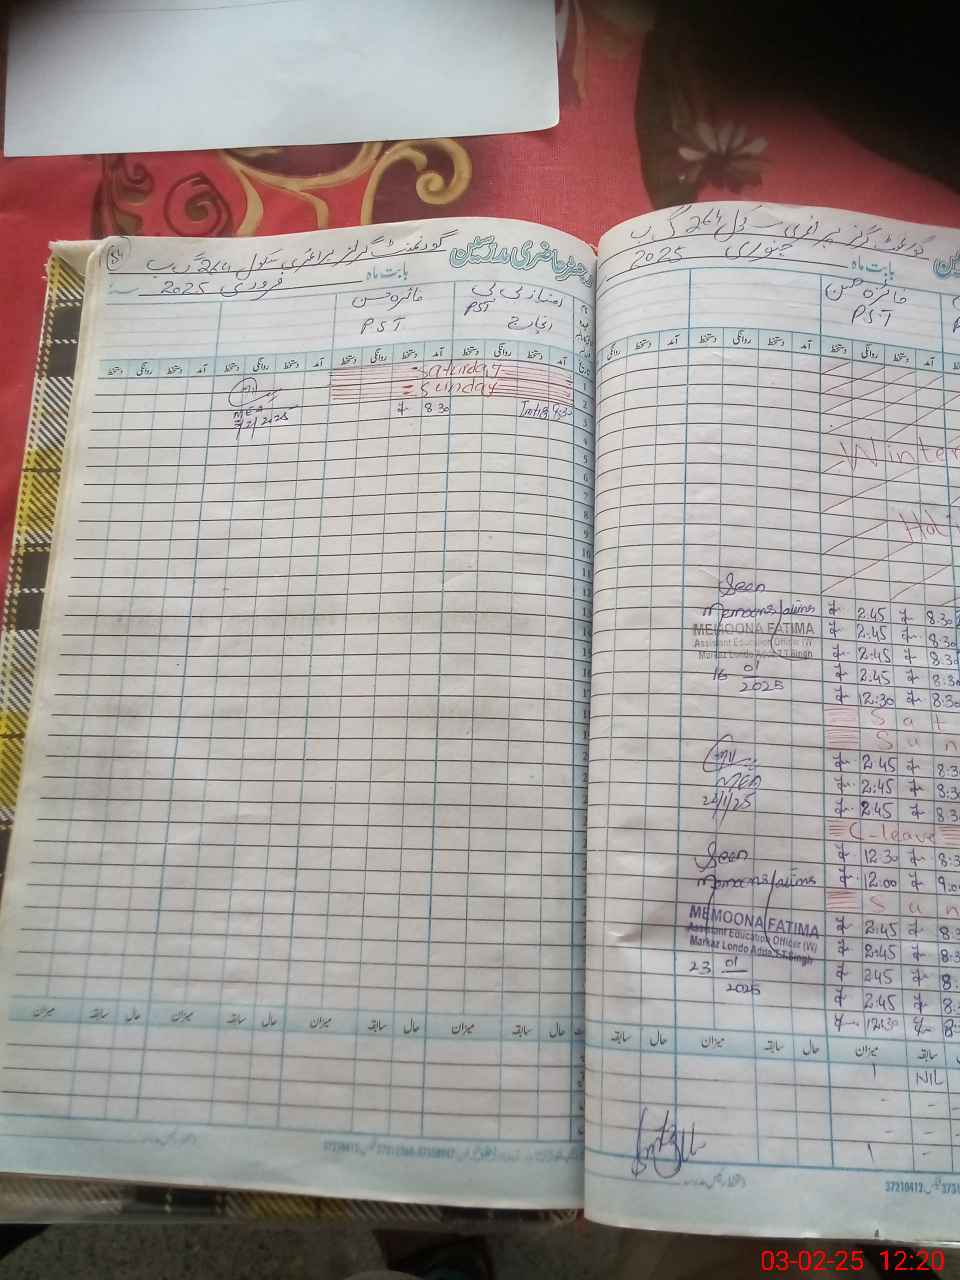 رجسٹر حاضری مدرسین
گورنمنٹ گرلز پرائمری سکول 264 گ ب
بابت ماہ فروری 2025
امتیاز بی بی
PST
انچارج
فائزہ حسن
PST
آمد دستخط روانگی دستخط آمد دستخط روانگی دستخط آمد دستخط روانگی دستخط آمد دستخط روانگی دستخط
Saturday
Sunday
8:30
MEA
3/2/2025
حال سابقہ میزان حال سابقہ میزان حال سابقہ میزان حال سابقہ میزان
گورنمنٹ گرلز پرائمری سکول 264 گ ب
بابت ماہ جنوری 2025
فائزہ حسن
PST
Winter
Seen
MEMOONA FATIMA
Assistant Education Officer (W)
Markaz Londo Adda T.T.Singh
16 01
2025
2.45 8.30
2.45 8.30
2.45 8.30
2.45 8.30
12:30 8:30
Sat
Sun
2.45 8.3
2.45 8.3
2.45 8.3
MEA
22/1/25
C-leave
12.30 8.3
12.00 9.0
Sun
Seen
MEMOONA FATIMA
Assistant Education Officer (W)
Markaz Londo Adda T.T.Singh
23 01
2025
2.45 8.3
2.45 8.3
2.45 8.
2.45 8.3
12:30 8:
حال سابقہ میزان حال سابقہ میزان
NIL
37210412
03-02-25 12:20